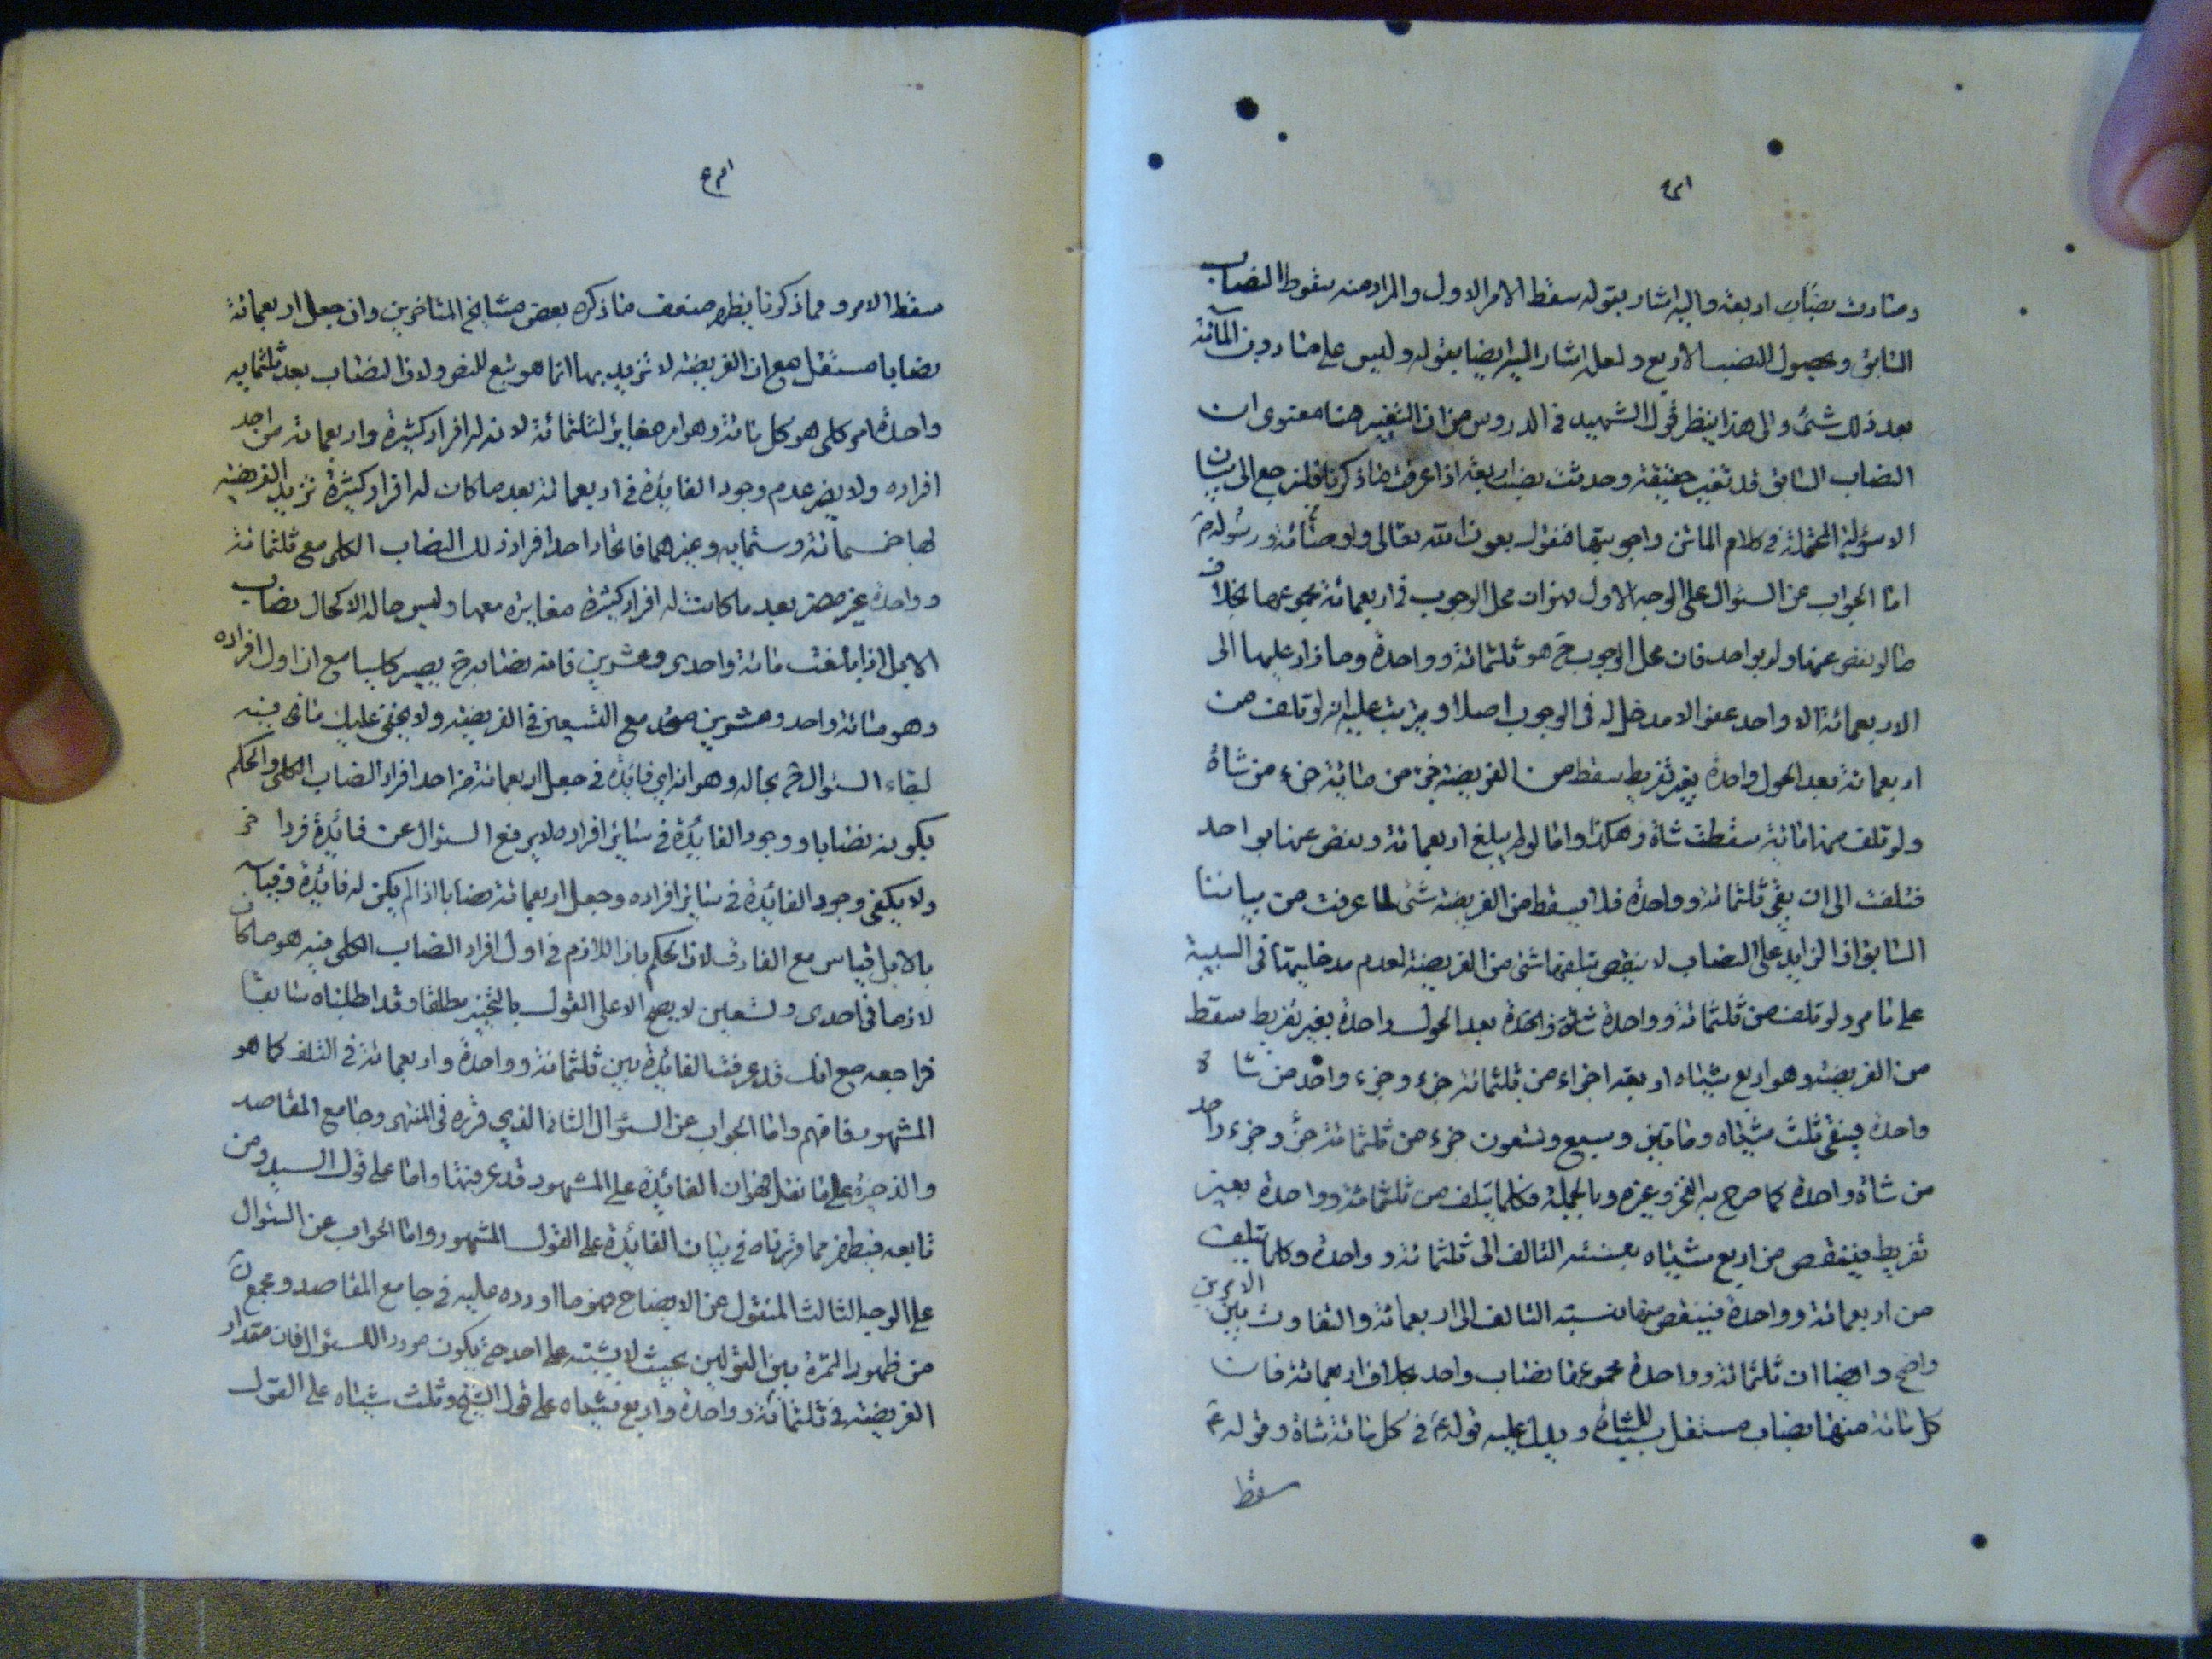 وصارت نصابات اربعة واليه اشار بقوله سقط الامر الاول والمراد منه سقوط النصاب
السابق وبحصول النصب الاربع ولعله اشار اليه ايضا بقوله وليس على ما دون المائة
بعد ذلك شئ والى هذا ينظر قول الشهيد في الدروس من ان التغيير هنا معنوى ان
النصاب السابق قد تغير حقيقة وحدثت نصب اربعة اذا عرفت ما ذكرنا فلنرجع الى بيان
الاسؤلة المحتملة في كلام الماتن واجوبتها فنقول بعون الله تعالى ورسوله
اما الجواب عن السئوال على الوجه الاول فهو ان محل الوجوب في اربعمائة مجموعها بخلاف
ما لو نقص عنها ولو بواحد فان محل الوجوب ح هو ثلثمائة وواحدة وما زاد عليها الى
الاربعمائة الا واحد عفو لا مدخل له في الوجوب اصلا ويترتب عليه انه لو تلف من
اربعمائة بعد الحول واحدة بغير تفريط سقط من الفريضة جزء من مائة جزء من شاة
ولو تلف منها مائة سقطت شاة وهكذا واما لو لم يبلغ اربعمائة ونقص عنها بواحد
فتلفت الى ان بقى ثلثمائة وواحدة فلا يسقط من الفريضة شئ لما عرفت من بياننا
السابق ان الزايد على النصاب لا ينقص بتلفها شئ من الفريضة لعدم مدخليتها في السببية
على ما مر ولو تلف من ثلثمائة وواحدة شاة واحدة بعد الحول واحدة بغير تفريط سقط
من الفريضة وهو اربع شياه اربعة اجزاء من ثلثمائة جزء وجزء واحد من شاة
واحدة فيبقى ثلث شياه ومائتين وسبع وتسعون جزء من ثلثمائة جزء وجزء واحد
من شاة واحدة كما صرح به الفخر وغيره وبالجملة فكلما يتلف من ثلثمائة وواحدة بغير
تفريط فينقص من اربع شياه بنسبة التالف الى ثلثمائة وواحدة وكلما يتلف
من اربعمائة وواحدة فينقص منها بنسبة التالف الى اربعمائة والتفاوت بين الامرين
واضح وايضا ان ثلثمائة وواحدة مجموعها نصاب واحد بخلاف اربعمائة فان
كل مائة منها نصاب مستقل للشاة ويدل عليه قوله ع في كل مائة شاة وقوله ع
سقط
سقط الامر ومما ذكرنا يظهر ضعف ما ذكره بعض مشايخ المتاخرين وان جعل اربعمائة
نصابا مستقلا مع ان الفريضة لا تزيد بها انما هو تبع للنص ولان النصاب بعد ثلثمائه
واحدة امر كلى هو كل مائة وهو امر مغاير لثلثمائة لانه له افراد كثيرة واربعمائة من احد
افراده ولا يضر عدم وجود الفائدة في اربعمائة بعد ما كان له افراد كثيرة تزيد الفريضة
لها خمسمائة وستمايه وغيرهما فاتحاد احد افراد ذلك النصاب الكلى مع ثلثمائة
وواحدة غير مضر بعد ما كانت له افراد كثيرة مغايرة معها وليس حاله الا كحال نصاب
الابل اذا بلغت مائة واحدى وعشرين فانه نصابه ح يصير كليا مع ان اول افراده
وهو مائة واحد وعشرين متحد مع التسعين في الفريضة ولا يخفى عليك ما فيه
لبقاء السئوال ح بحاله وهو انه اي فائدة في جعل اربعمائة من احد افراد النصاب الكلى والحكم
بكونه نصابا ووجود الفائدة في سائر افراده لا يرفع السئوال عن فائدة فردا خر
ولا يكفى وجود الفائدة في سائر افراده وجعل اربعمائة نصابا اذا لم يكن له فائدة وقياسه
بالابل قياس مع الفارق لان الحكم بان اللازم في اول افراد النصاب الكلى فيه هو ما كان
لازما في احدى وتسعين لا يصح الا على القول بالتخيير مطلقا وقد ابطلناه سابقا
فراجعه مع انك قد عرفت الفائدة بين ثلثمائة وواحدة واربعمائة في التلف كما هو
المشهور فافهم واما الجواب عن السئوال الثاني الذي قرره في المنتهى وجامع المقاصد
والذخيرة على ما نقل فهو ان الفائدة على المشهور قد عرفتها واما على قول السيد ومن
تابعه فيظهر مما قررناه في بيان الفائدة على القول المشهور واما الجواب عن السئوال
على الوجه الثالث المنقول عن الايضاح فهو ما اورده عليه في جامع المقاصد ومجمع
من ظهور الثمرة بين القولين بحيث لا يشتبه على احد حتى يكون موردا للسئوال فان مقدار
الفريضة في ثلثمائة وواحدة واربع شياه على قول الشيخ وثلث شياه على القول